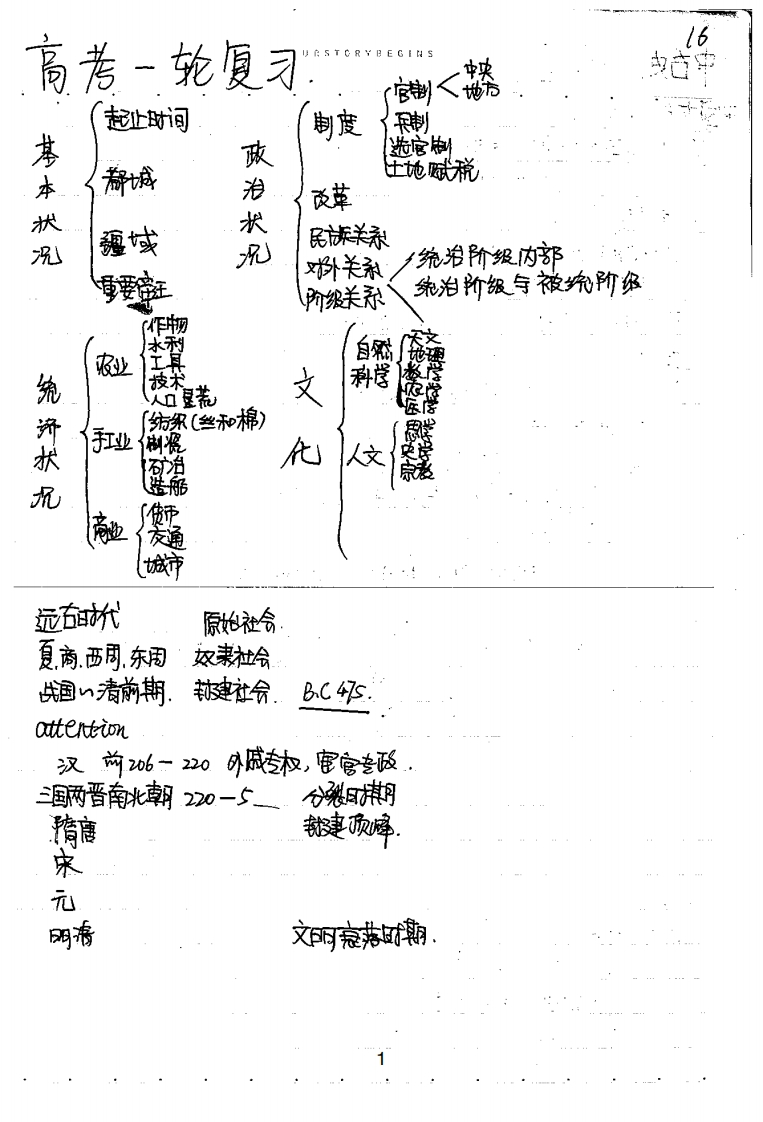 16
高考一轮复习
基本状况
起止时间
都城
疆域
重要帝王
政治状况
制度
官制
中央
地方
兵制
选官制
土地赋税
改革
民族关系
对外关系
阶级关系
统治阶级内部
统治阶级与被统阶级
统济状况
农业
作物
水利
工具
技术
人口垦荒
手工业
纺织(丝和棉)
制瓷
矿冶
造船
商业
货币
交通
城市
文化
自然科学
天文
地理
数学
农学
医学
人文
思学
史学
宗教
远古时代 原始社会.
夏,商,西周,东周 奴隶社会
战国~清前期. 封建社会. B.C 475.
attention
汉 前206－220 外戚专权,宦官专政.
三国两晋南北朝 220－5__ 分裂时期
隋唐 封建顶峰.
宋
元
明清 文明衰落时期.
1